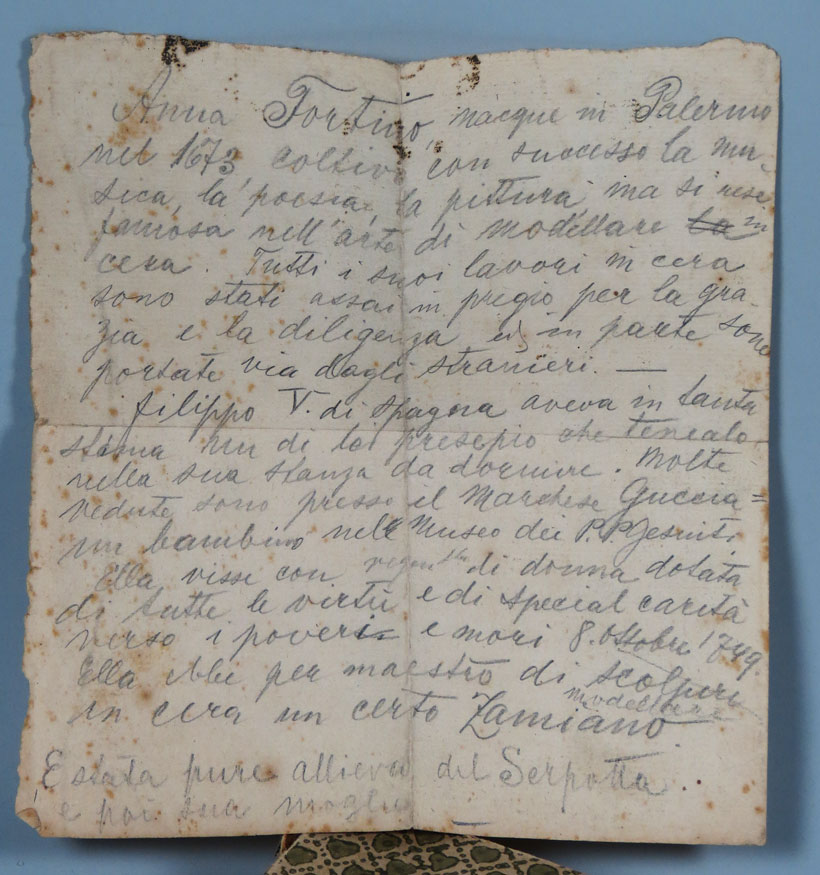 Anna Fortino, nacque in Palermo
nel 1673, coltivò con successo la mu-
sica, la poesia, la pittura, ma si rese
famosa nell'arte di modellare la in
cera. Tutti i suoi lavori in cera
sono stati assai in pregio per la gra-
zia e la diligenza ed in parte sono
portate via dagli stranieri. —
Filippo V. di Spagna aveva in tanta
stima un di lei presepio che tenealo
nella sua stanza da dormire. Molte
vedute sono presso il Marchese Guccia=
un bambino nell Museo dei P.P. Jesuiti.
Ella visse con di donna dotata
di tutte le virtù e di special carità
verso i poveri e morì 8. Ottobre 1749.
Ella ebbe per maestro di scolpire
modellare
in cera un certo Zamiano
E stata pure allieva del Serpotta.
e poi sua moglie